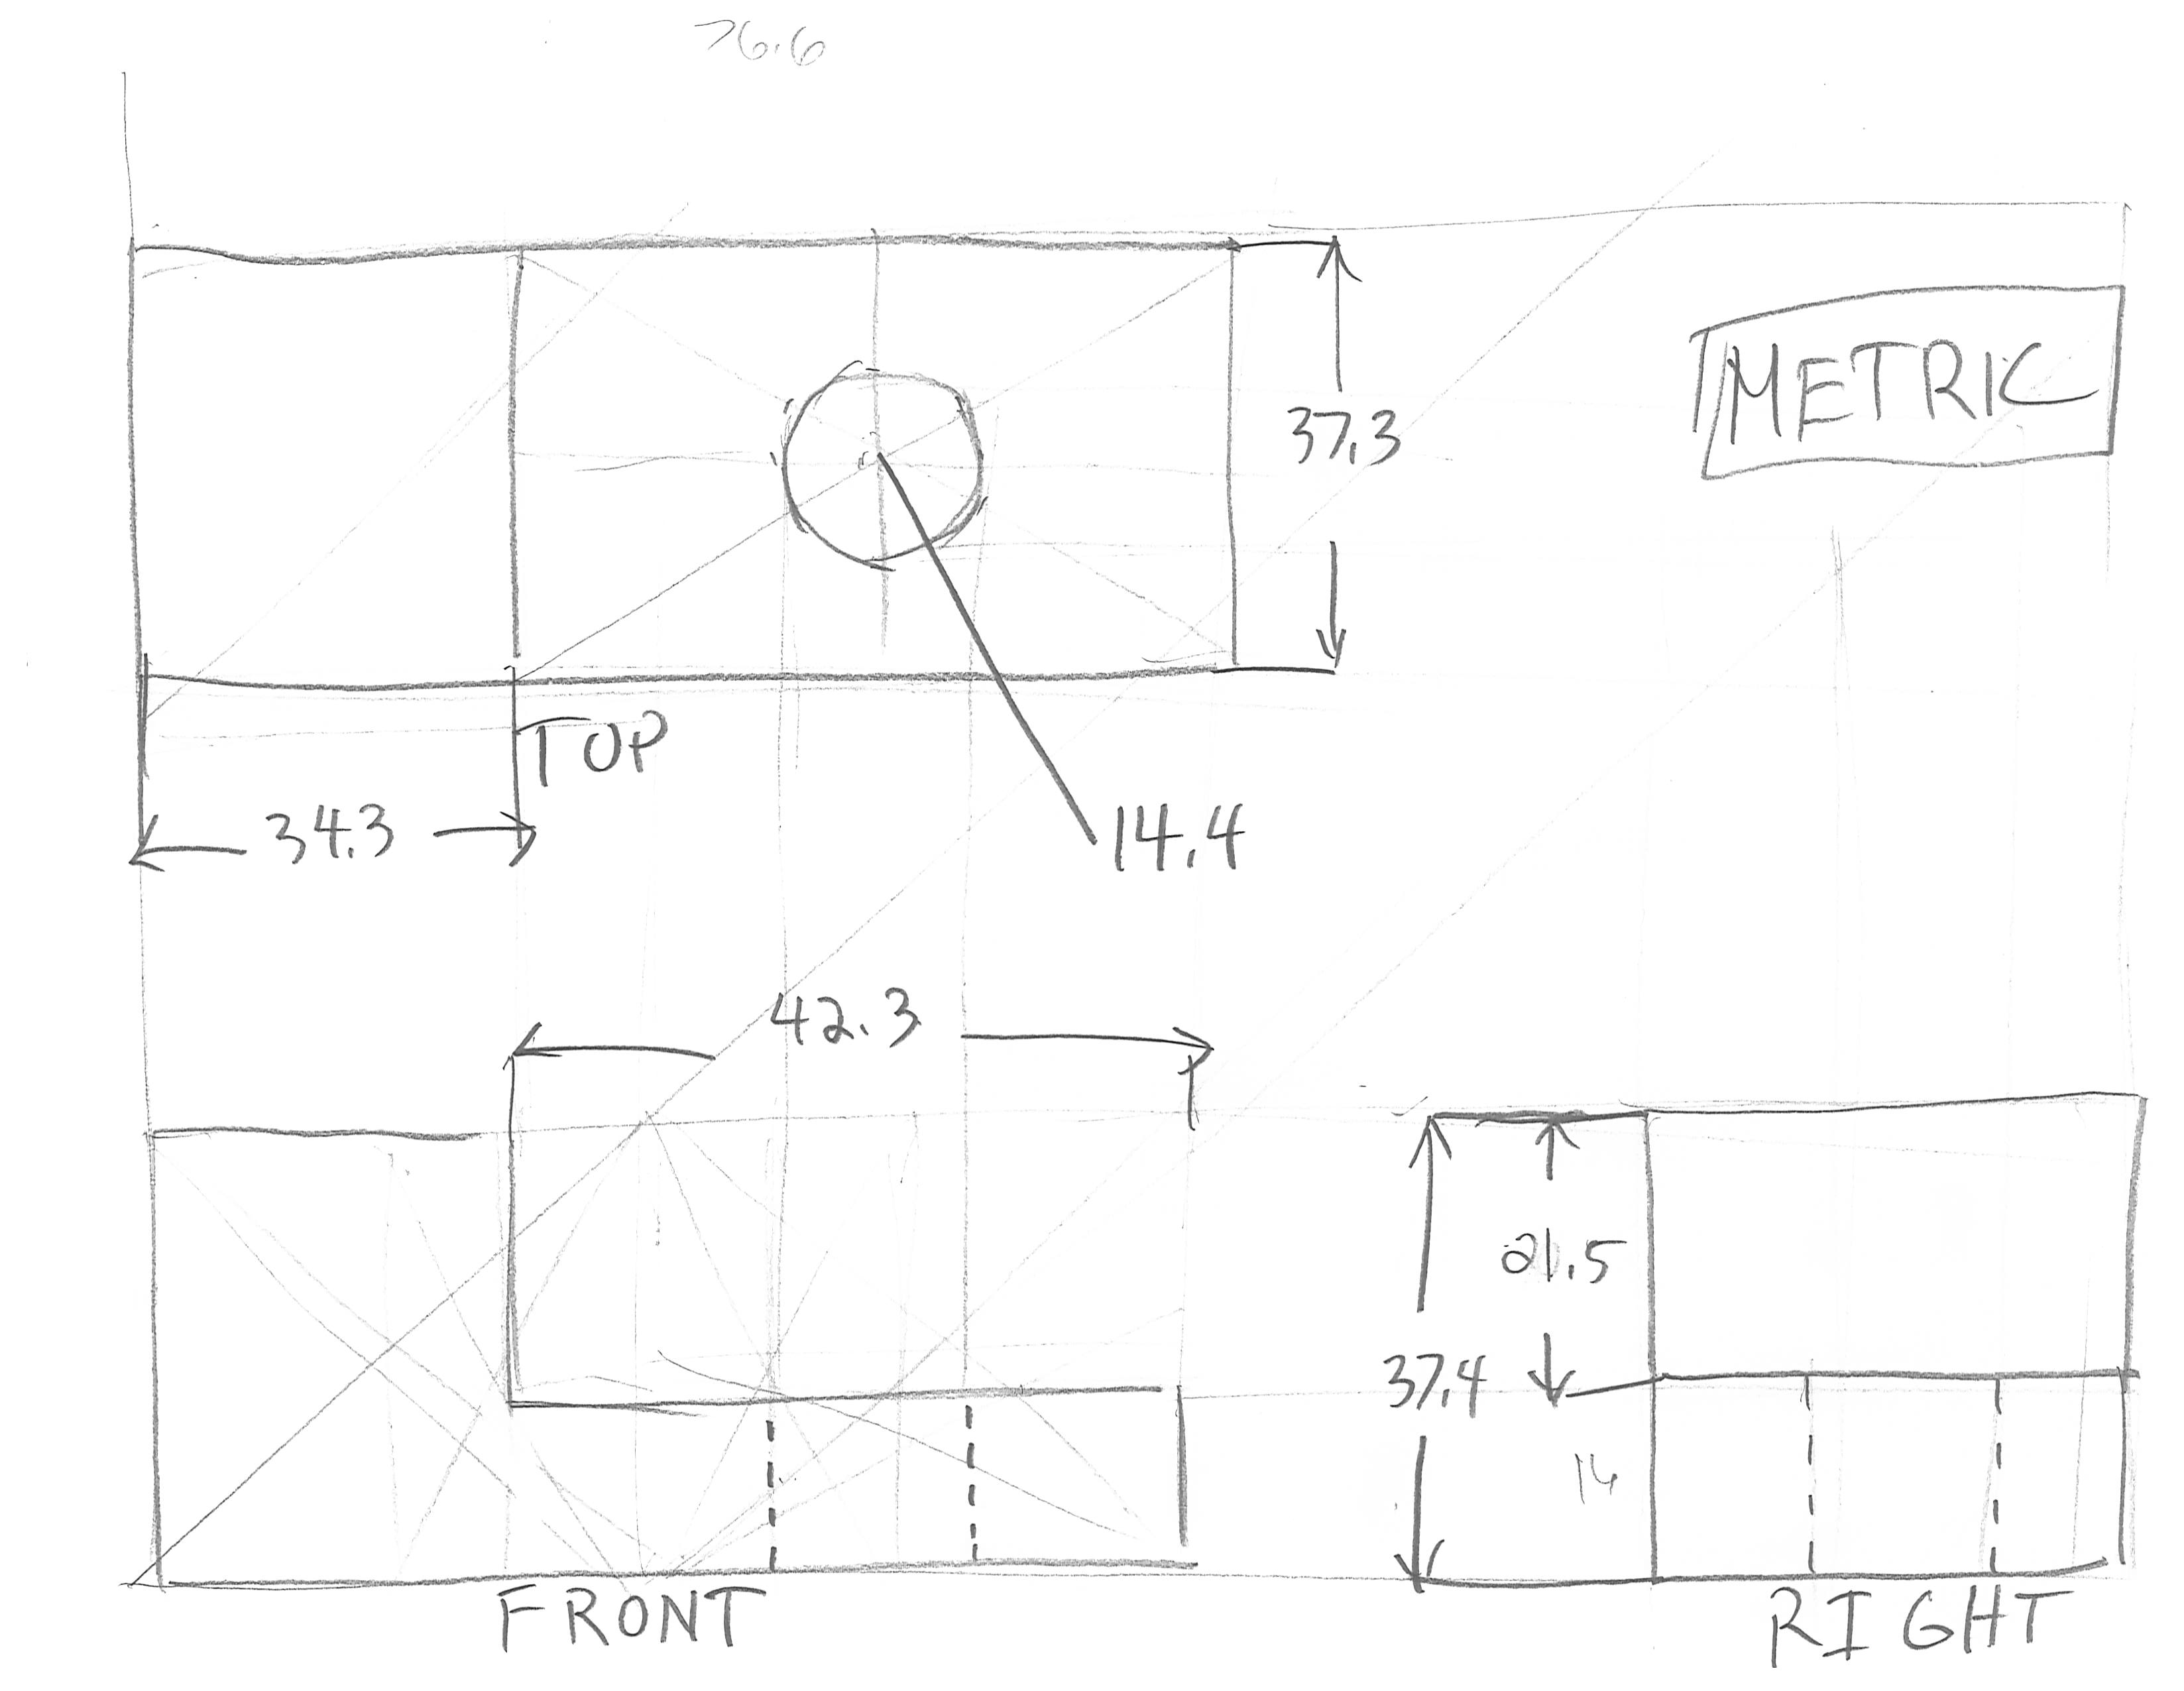 76.6
METRIC
37.3
TOP
34.3
14.4
42.3
21.5
37.4
14
FRONT
RIGHT